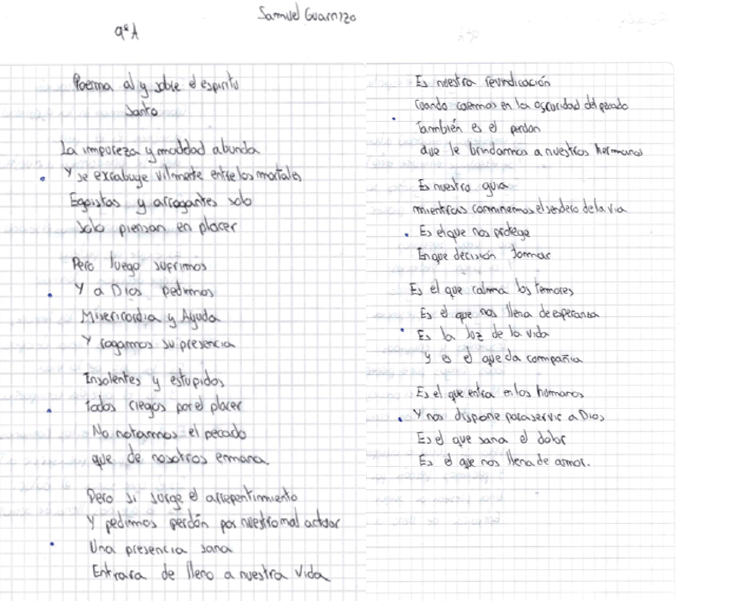 Samuel Guarnizo
9ºA
Poema al y sobre el espiritu
santo
La impureza y maldad abunda
Y se excabuye vilmente entre los mortales
Egoistas y arrogantes solo
solo piensan en placer
Pero luego sufrimos
Y a Dios pedimos
Misericordia y Ayuda
Y rogamos su presencia
Insolentes y estupidos
todos ciegos por el placer
No notamos el pecado
que de nosotros emana
Pero si surge el arrepentimiento
Y pedimos perdón por nuestro mal actuar
Una presencia sana
Entrara de lleno a nuestra vida
Es nuestra reivindicación
Cuando caemos en la oscuridad del pecado
También es el perdon
que le brindamos a nuestros hermanos
Es nuestro guia
mientras caminemos el sendero de la via
Es el que nos protege
En que decisión tomar
Es el que calma los temores
Es el que nos llena de esperanza
Es la luz de la vida
Y es el que da compañia
Es el que entra en los humanos
Y nos dispone para servir a Dios
Es el que sana el dolor
Es el que nos llena de amor.